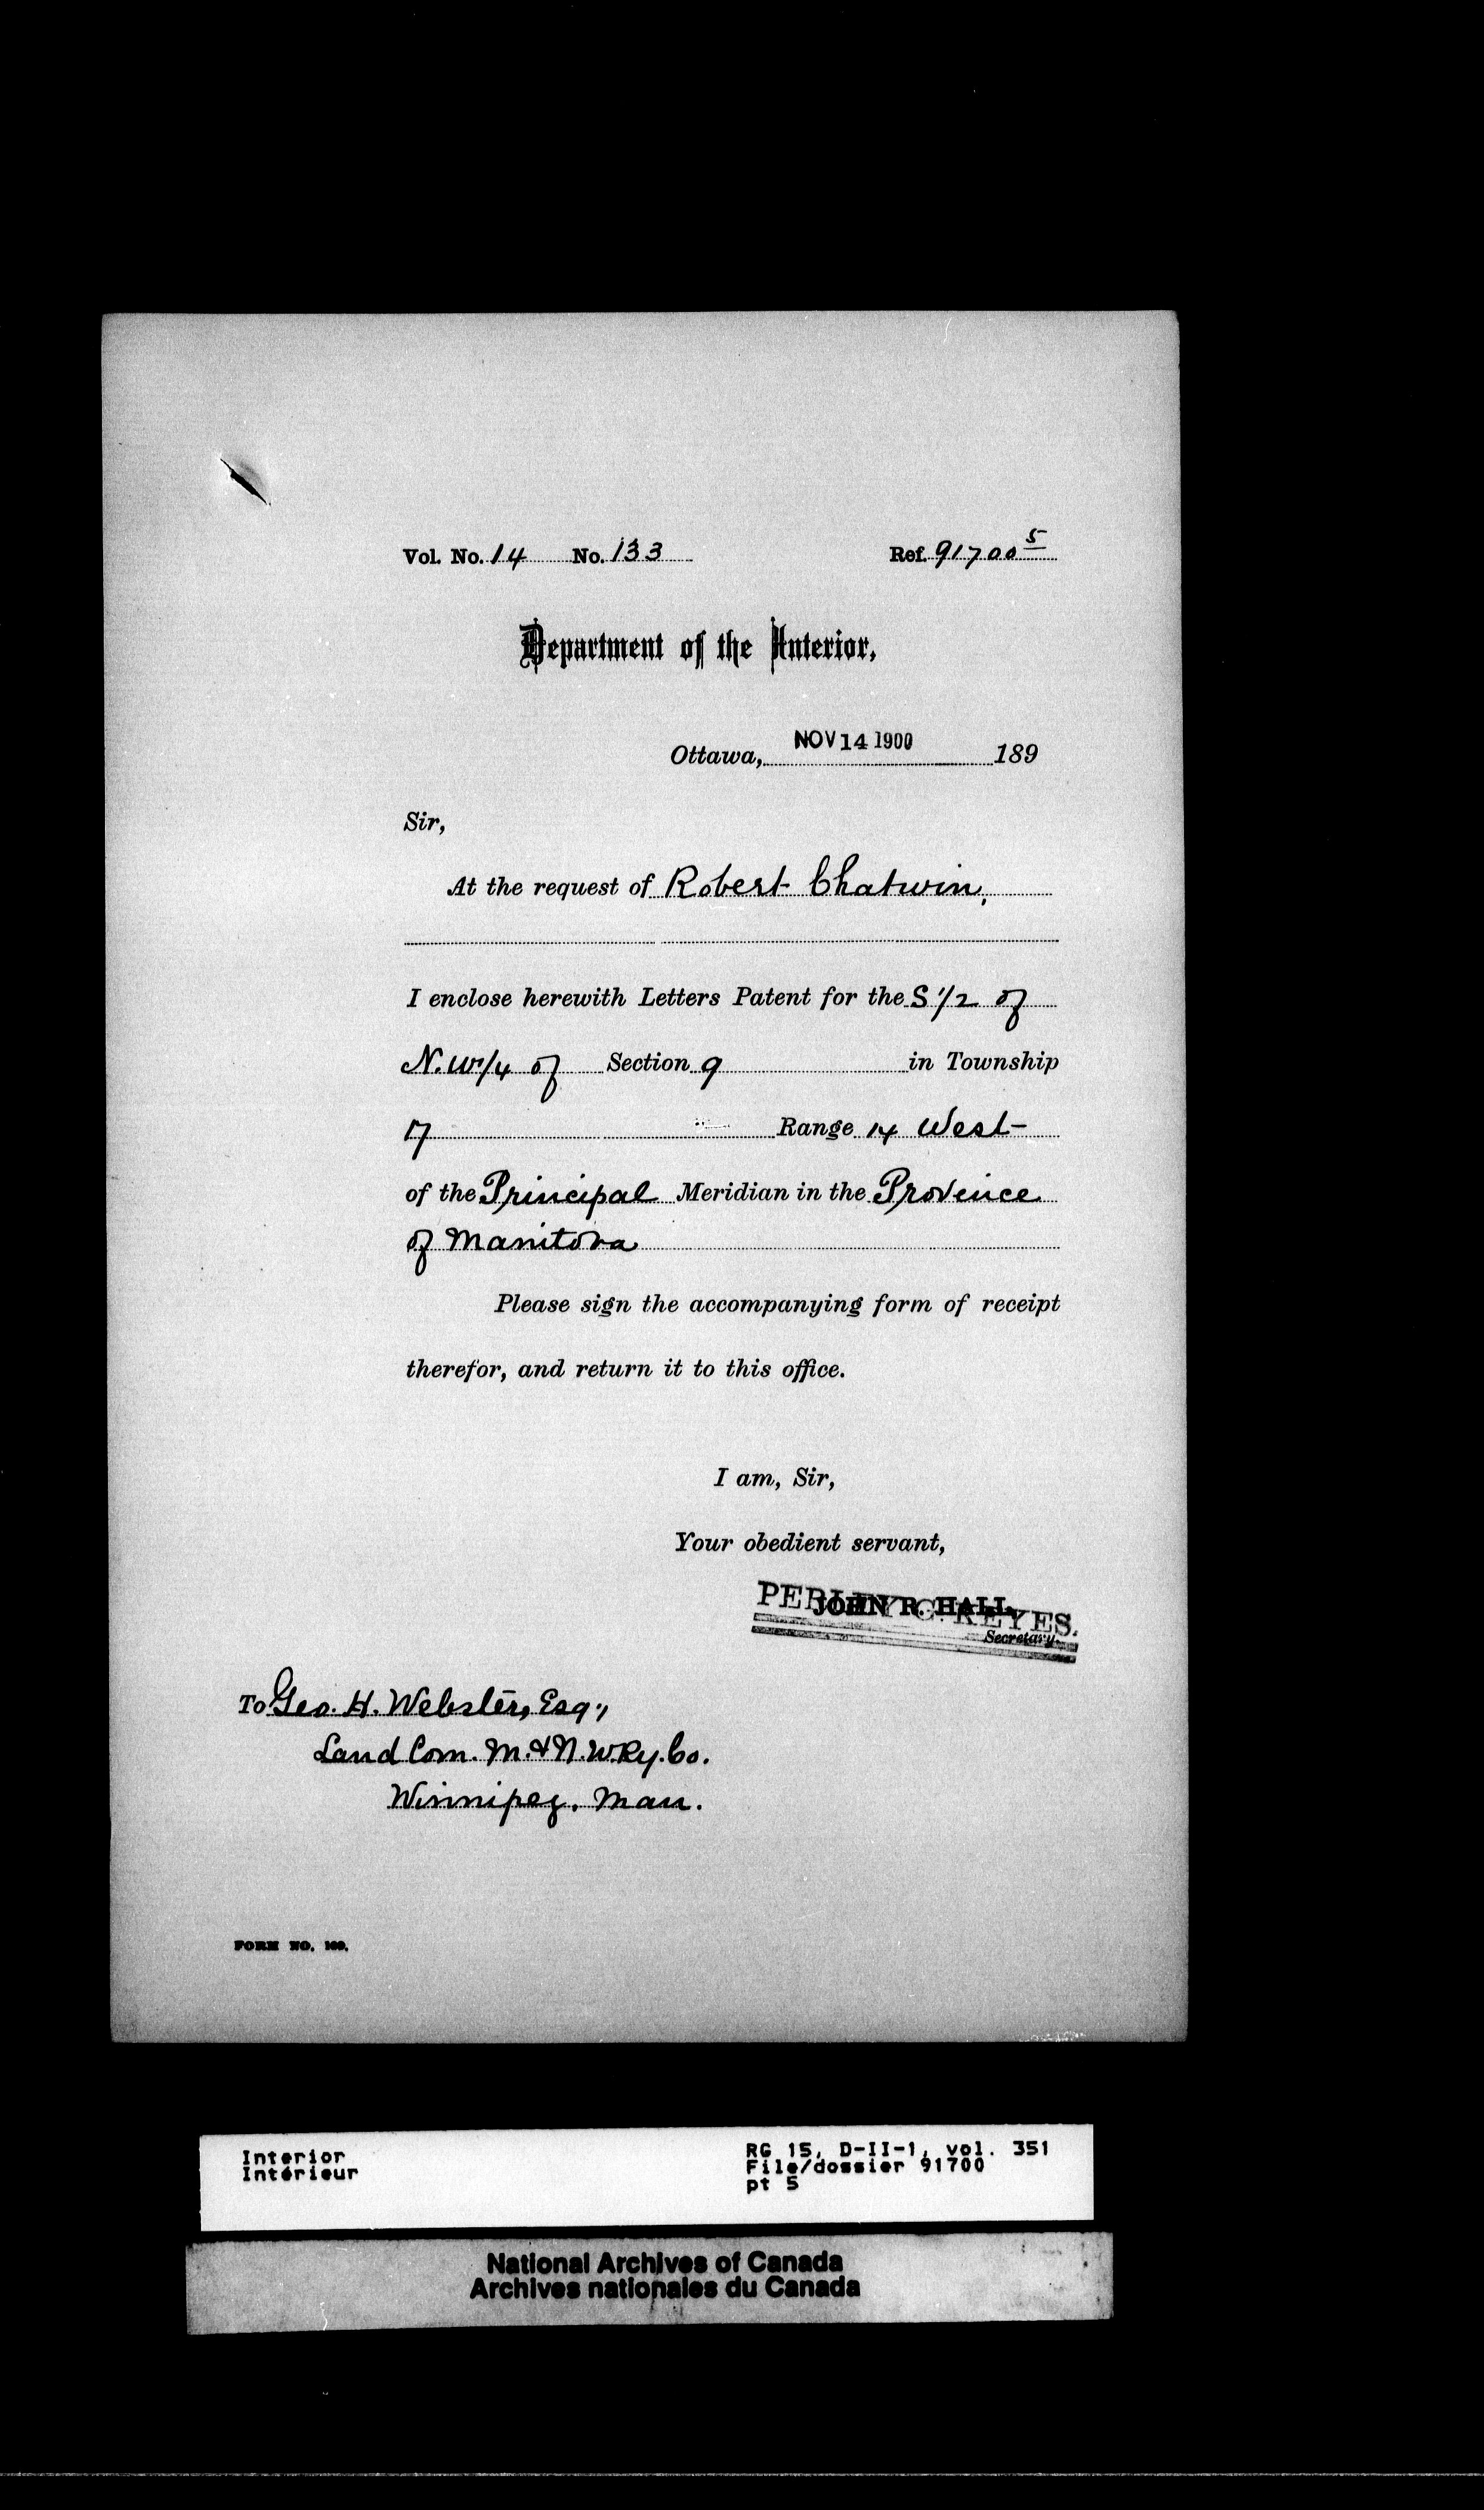 Vol. No. 14 No. 133 Ref. 91700 5
Department of the Interior,
Ottawa, NOV 14 1900 189
Sir,
At the request of Robert Chatwin,
I enclose herewith Letters Patent for the S 1/2 of
N.W1/4 of Section 9 in Township
17 Range 14 West
of the Principal Meridian in the Province
of Manitoba
Please sign the accompanying form of receipt
therefor, and return it to this office.
I am, Sir,
Your obedient servant,
PERLEY G. KEYES.
JOHN R. HALL
Secretary.
To Geo. H. Webster, Esq.,
Land Com. M. & N. W. Ry. Co.
Winnipeg, Man.
FORM NO. 169.
Interior
Intérieur
RG 15, D-II-1, vol. 351
File/dossier 91700
pt 5
National Archives of Canada
Archives nationales du Canada